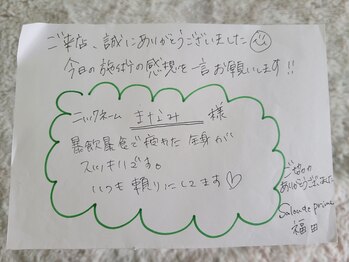 ご来店、誠にありがとうございました
今日の施術の感想を一言お願いします!!
ニックネーム きなみ 様
暴飲暴食で疲れた全身が
スッキリです。
いつも頼りにしてます♡
ご協力
ありがとうございました
Salon de prime
福田